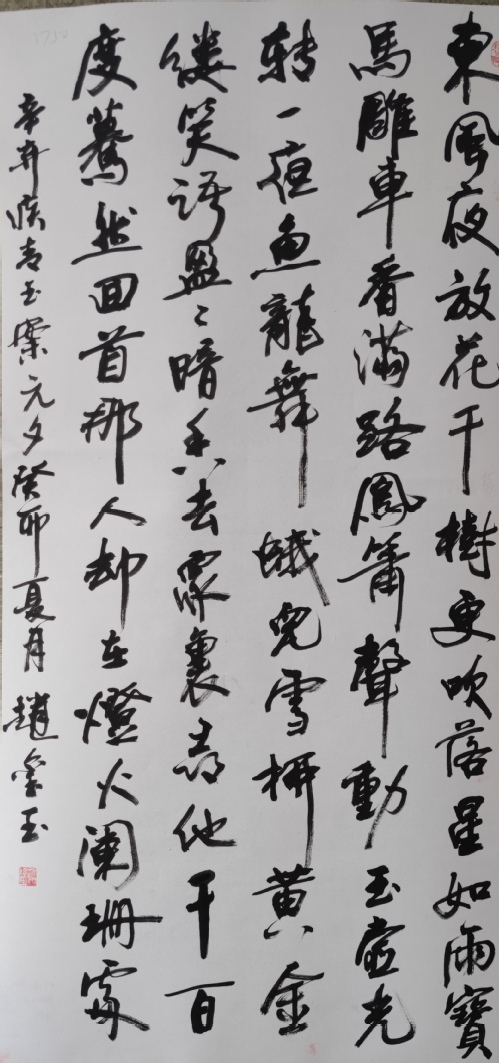 東風夜放花千樹更吹落星如雨寶
馬雕車香滿路鳳簫聲動玉壺光
转一夜魚龍舞蛾兒雪柳黄金
缕笑語盈々暗香去眾裏尋他千百
度驀然回首那人却在燈火闌珊處
辛弃疾青玉案元夕癸卯夏月趙玉